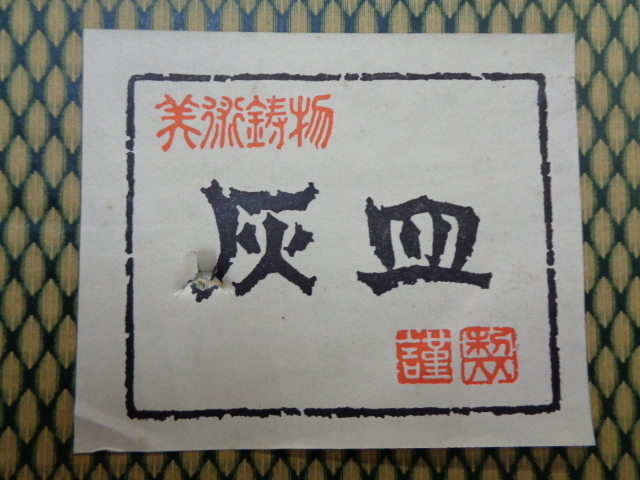 美術鋳物
灰皿
謹製